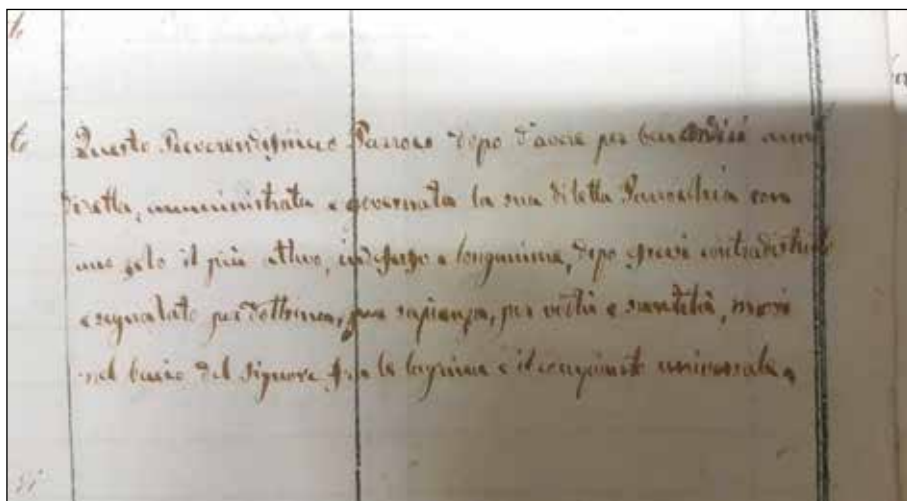 Questo Reverendissimo Parroco dopo d'avere per ben anni
diretta, amministrata e governata la sua diletta Parrocchia con
uno zelo il più attivo, indefesso e longanime, dopo essersi contradistinto
e segnalato per dottrina, per sapienza, per virtù e santità, morì
nel bacio del Signore fra le lagrime e il compianto universale.